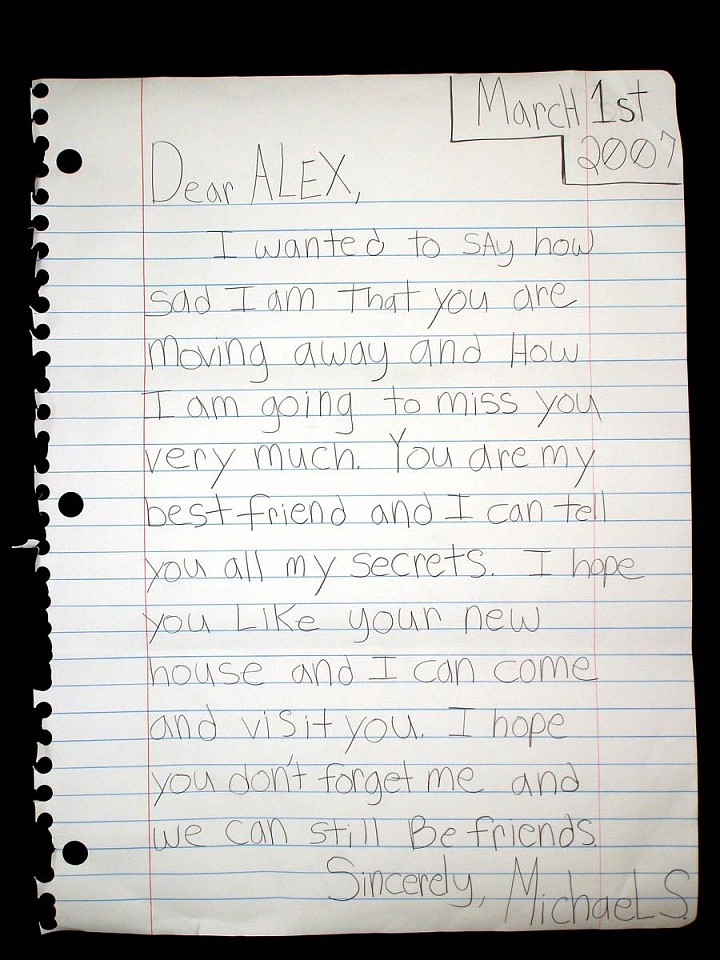 March 1st
2007
Dear ALEX,
I wanted to SAy how
sad I am that you are
moving away and How
I am going to miss you
very much. You are my
best friend and I can tell
you all my secrets. I hope
you Like your new
house and I can come
and visit you. I hope
you don't forget me and
we can still Be friends.
Sincerely, MichaeL S.